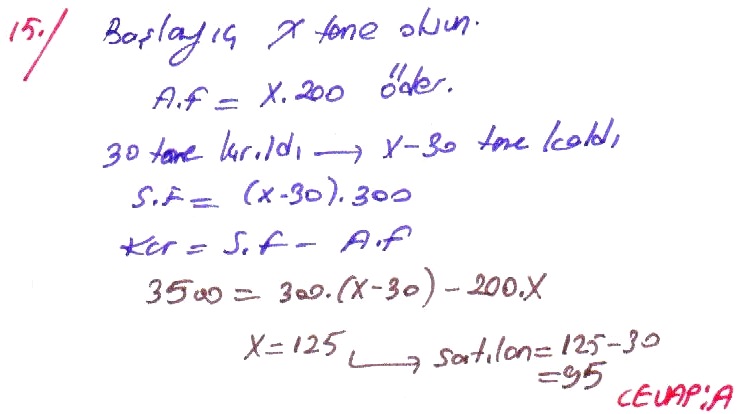 15./ Başlangıç x tane olsun.
A.F = X.200 öder.
30 tane kırıldı → x-30 tane kaldı
S.F = (x-30).300
Kar = S.F - A.F
3500 = 300.(x-30) - 200.X
X=125 → satılan = 125-30
=95
CEVAP:A